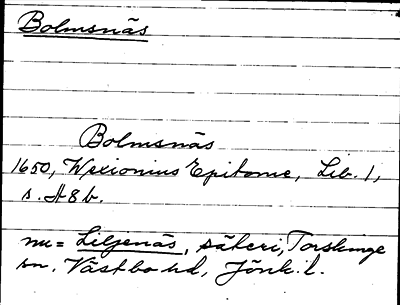 Bolmsnäs
Bolmsnäs
1650, Wexionius Epitome, Lib. 1,
s. H 8 b.
nu = Liljenäs, säteri, Torskinge
sn. Västbo hd, Jönk. l.